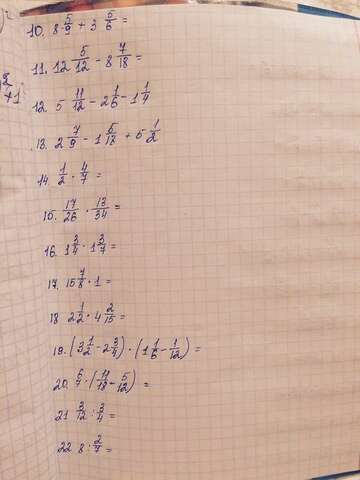 10. 8 5/9 + 3 5/6 =
11. 12 5/12 - 8 7/18 =
12 5 11/12 - 2 1/6 - 1 1/4
13. 2 7/9 - 1 5/18 + 5 1/2
14. 1/2 · 4/7 =
15. 17/26 · 13/34 =
16. 1 3/4 · 1 3/7 =
17. 15 7/8 · 1 =
18 2 1/2 · 4 2/15 =
19. (3 1/2 - 2 3/4) · (1 1/6 - 1/12) =
20. 6/7 · (11/18 + 5/12) =
21 3/12 : 3/4 =
22 8 : 2/7 =